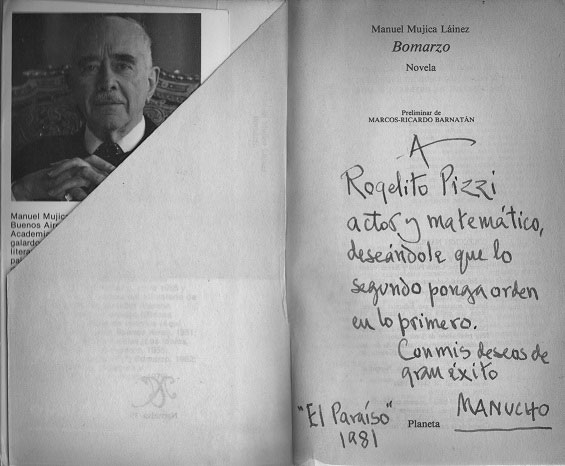 Manuel Mujic
Buenos Aire
Academi
galardo
litera
pa
Manuel Mujica Láinez
Bomarzo
Novela
Preliminar de
MARCOS-RICARDO BARNATÁN
A
Rogelito Pizzi
actor y matemático,
deseándole que lo
segundo ponga orden
en lo primero.
Con mis deseos de
gran éxito
MANUCHO
"El Paraíso"
1981
Planeta